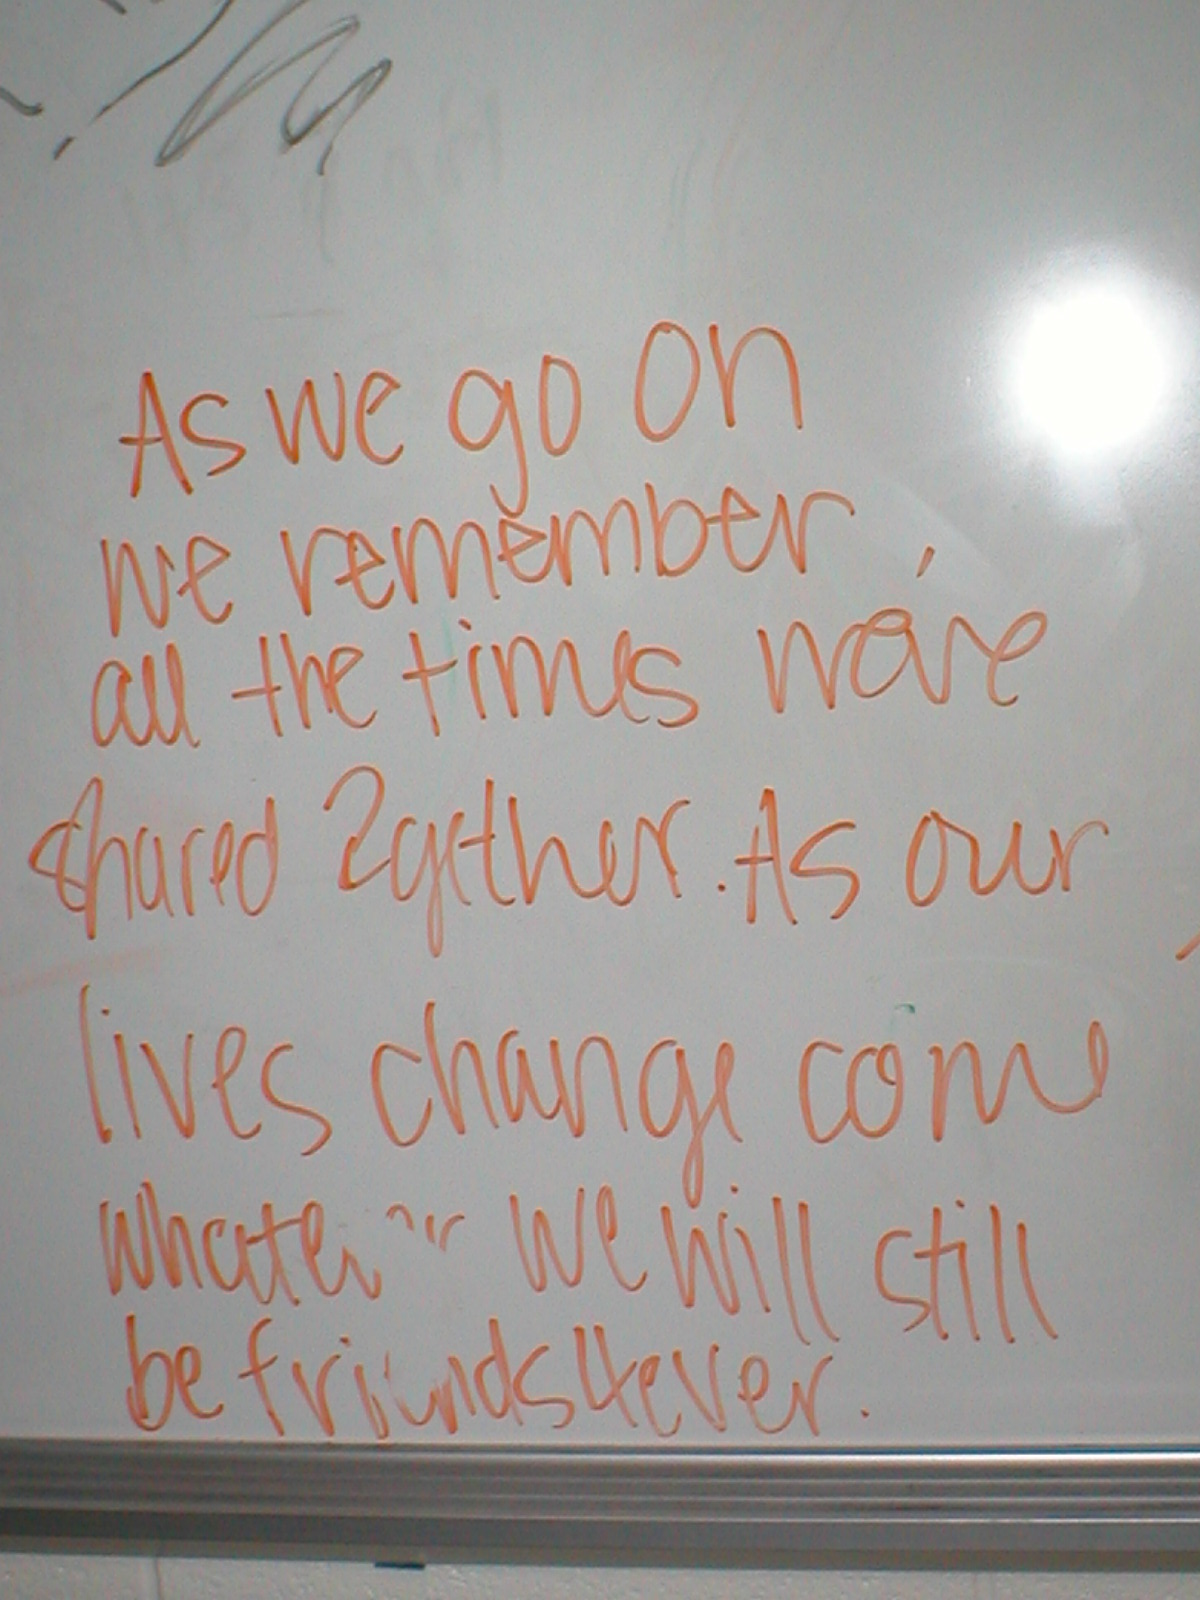 As we go on
we remember,
all the times we've
shared 2gether. As our
lives change come
whatever we will still
be friends4ever.